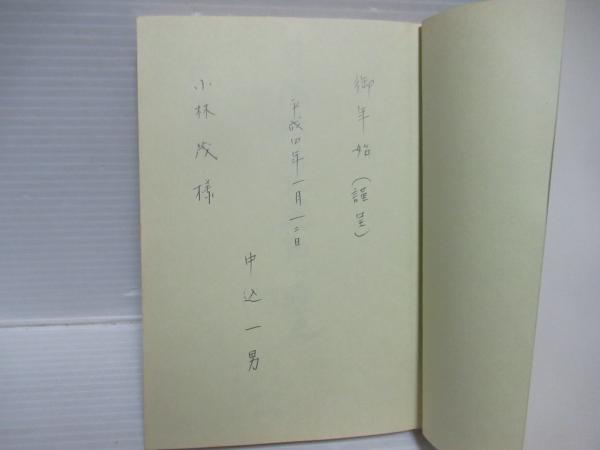 御年始(謹呈)
平成四年一月一二日
申込一男
小林茂様